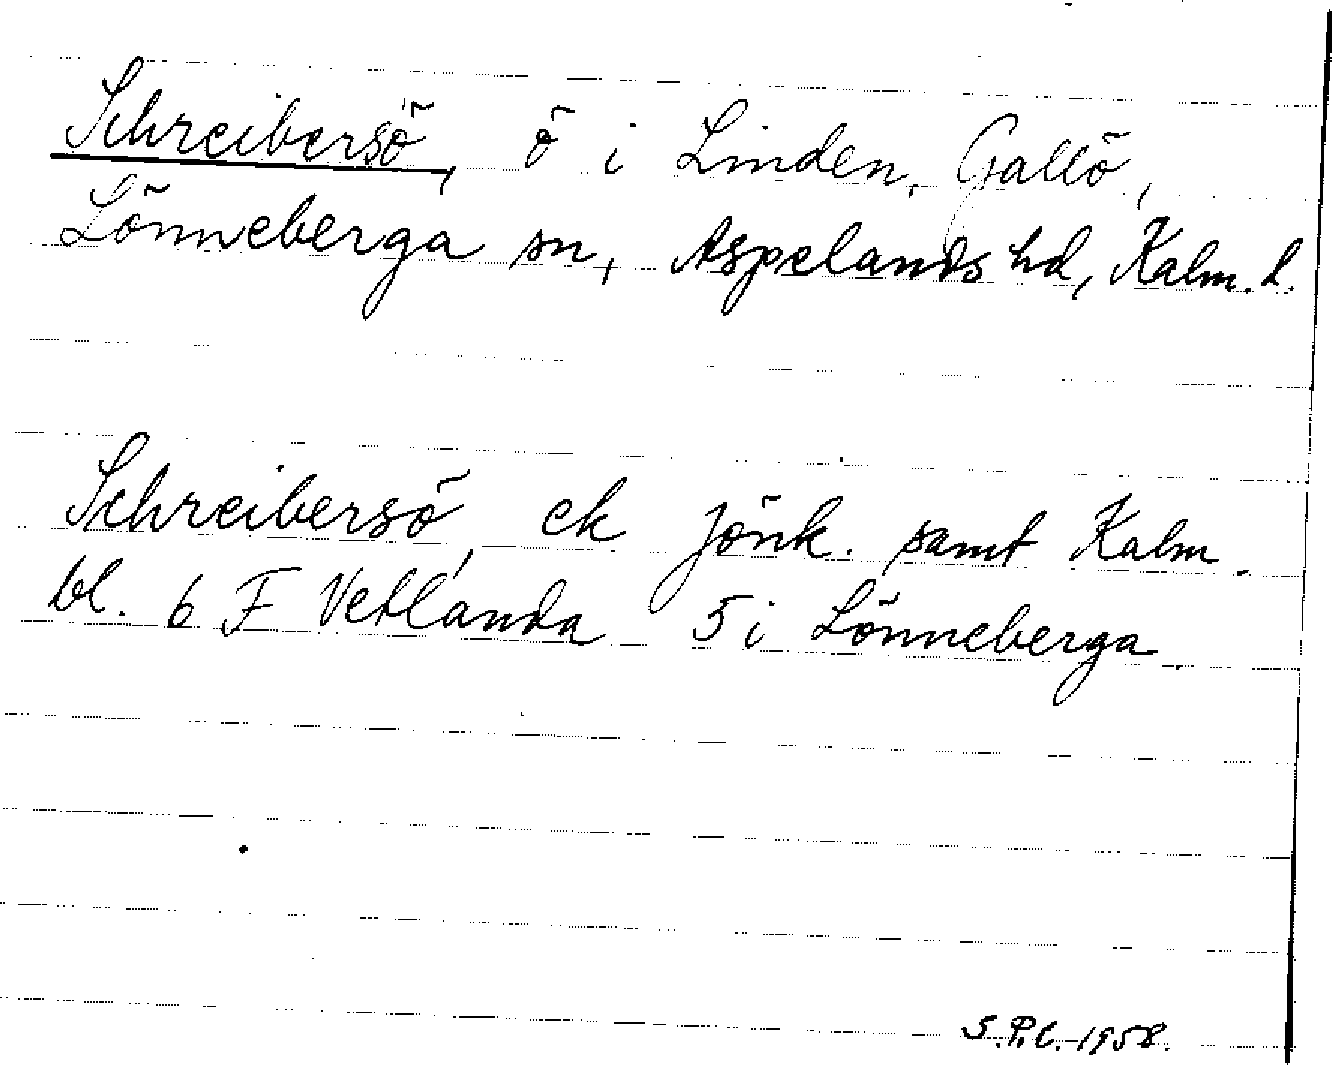 Schreibersö, ö i Linden, Gallö,
Lönneberga sn, Aspelands hd, Kalm. l.
Schreibersö, ek Jönk. samt Kalm.
bl. 6 F Vetlanda 5 i Lönneberga.
S.P.C. 1958.